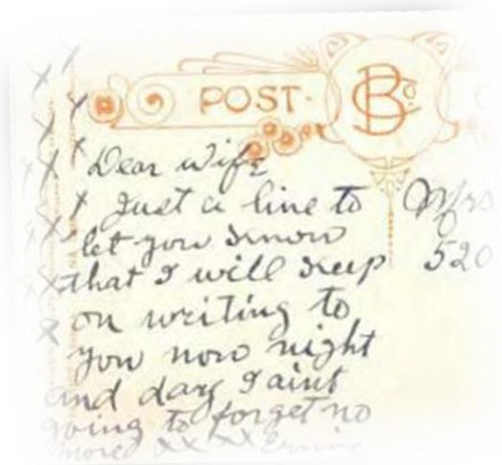 POST
Dear Wife
Just a line to
let you know
that I will keep
on writing to
you now night
and day I aint
going to forget no
more xx xx Ernie
Mrs
520